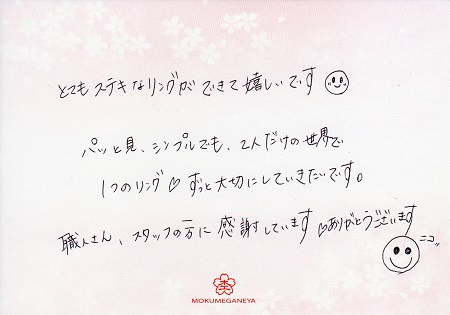 とてもステキなリングができて嬉しいです
パッと見、シンプルでも、2人だけの世界で
1つのリング♡ずっと大切にしていきたいです。
職人さん、スタッフの方に感謝しています♡ありがとうございます
ニコッ
MOKUMEGANEYA